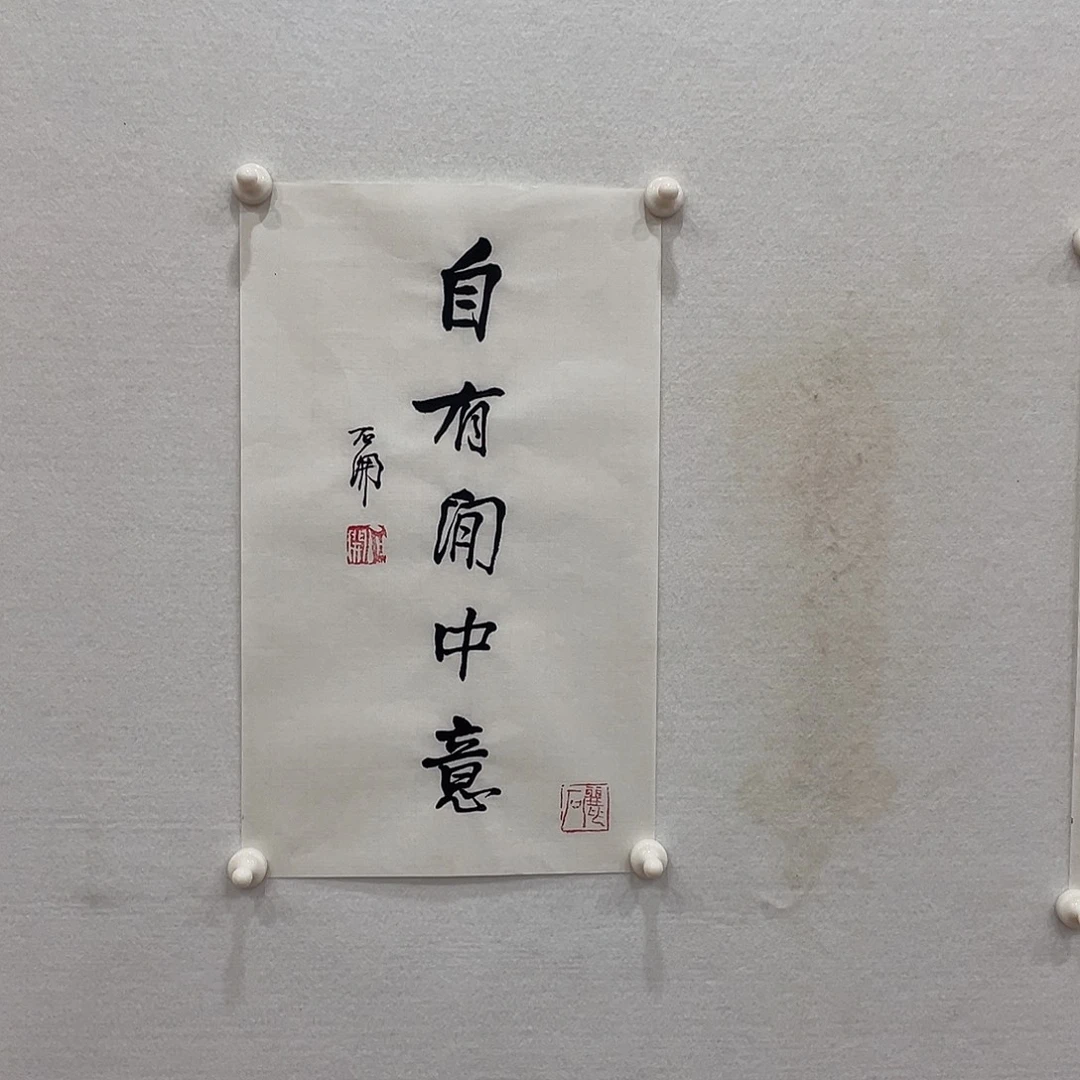 自有閒中意
石開